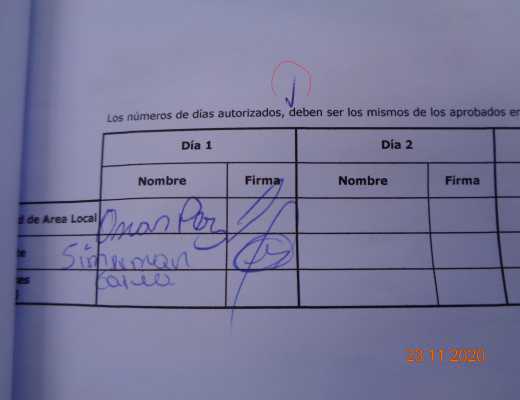 Los números de días autorizados, deben ser los mismos de los aprobados en
Día 1 Día 2
Nombre Firma Nombre Firma
d de Area Local Omar
te
es
23 11 2020